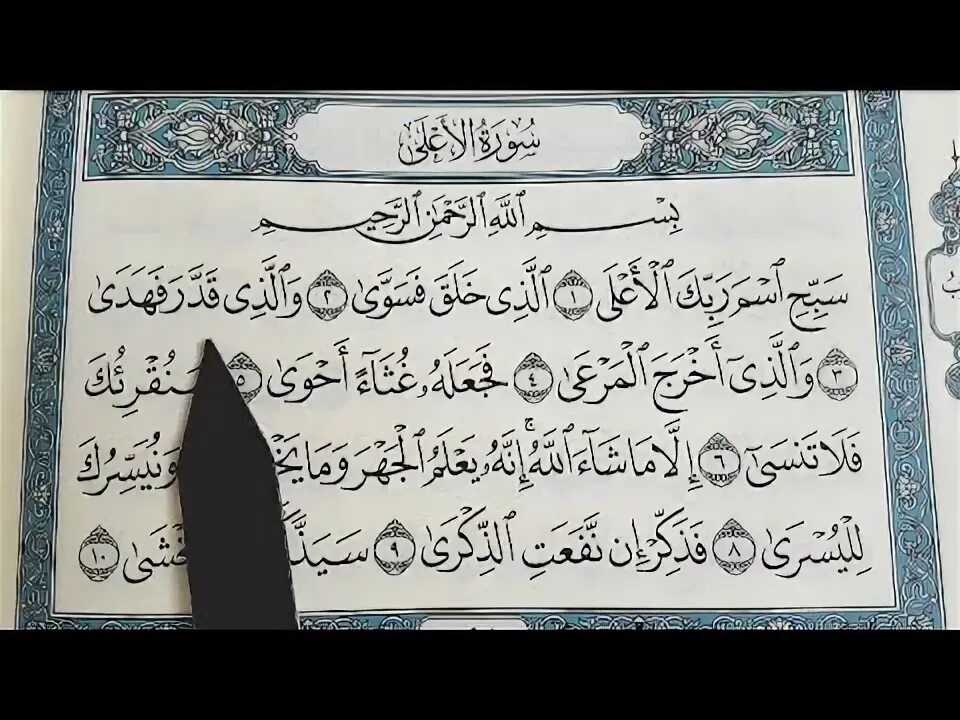 سُورَةُ الأَعْلَى
بِسْمِ ٱللَّهِ ٱلرَّحْمَٰنِ ٱلرَّحِيمِ
سَبِّحِ ٱسْمَ رَبِّكَ ٱلْأَعْلَى ١ ٱلَّذِى خَلَقَ فَسَوَّىٰ ٢ وَٱلَّذِى قَدَّرَ فَهَدَىٰ
٣ وَٱلَّذِىٓ أَخْرَجَ ٱلْمَرْعَىٰ ٤ فَجَعَلَهُۥ غُثَآءً أَحْوَىٰ ٥
فَلَا تَنسَىٰٓ ٦ إِلَّا مَا شَآءَ ٱللَّهُۚ إِنَّهُۥ يَعْلَمُ ٱلْجَهْرَ وَمَا وَنُيَسِّرُكَ
لِلْيُسْرَىٰ ٨ فَذَكِّرْ إِن نَّفَعَتِ ٱلذِّكْرَىٰ ٩ ١٠